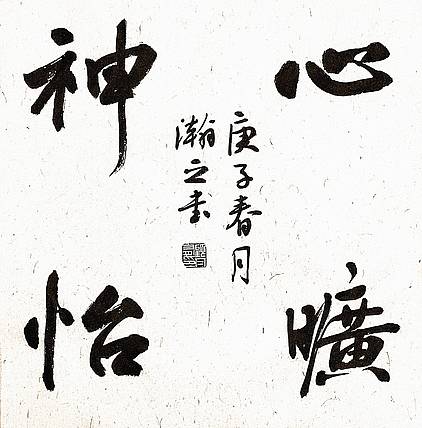 心曠
神怡
庚子春月
瀚之书